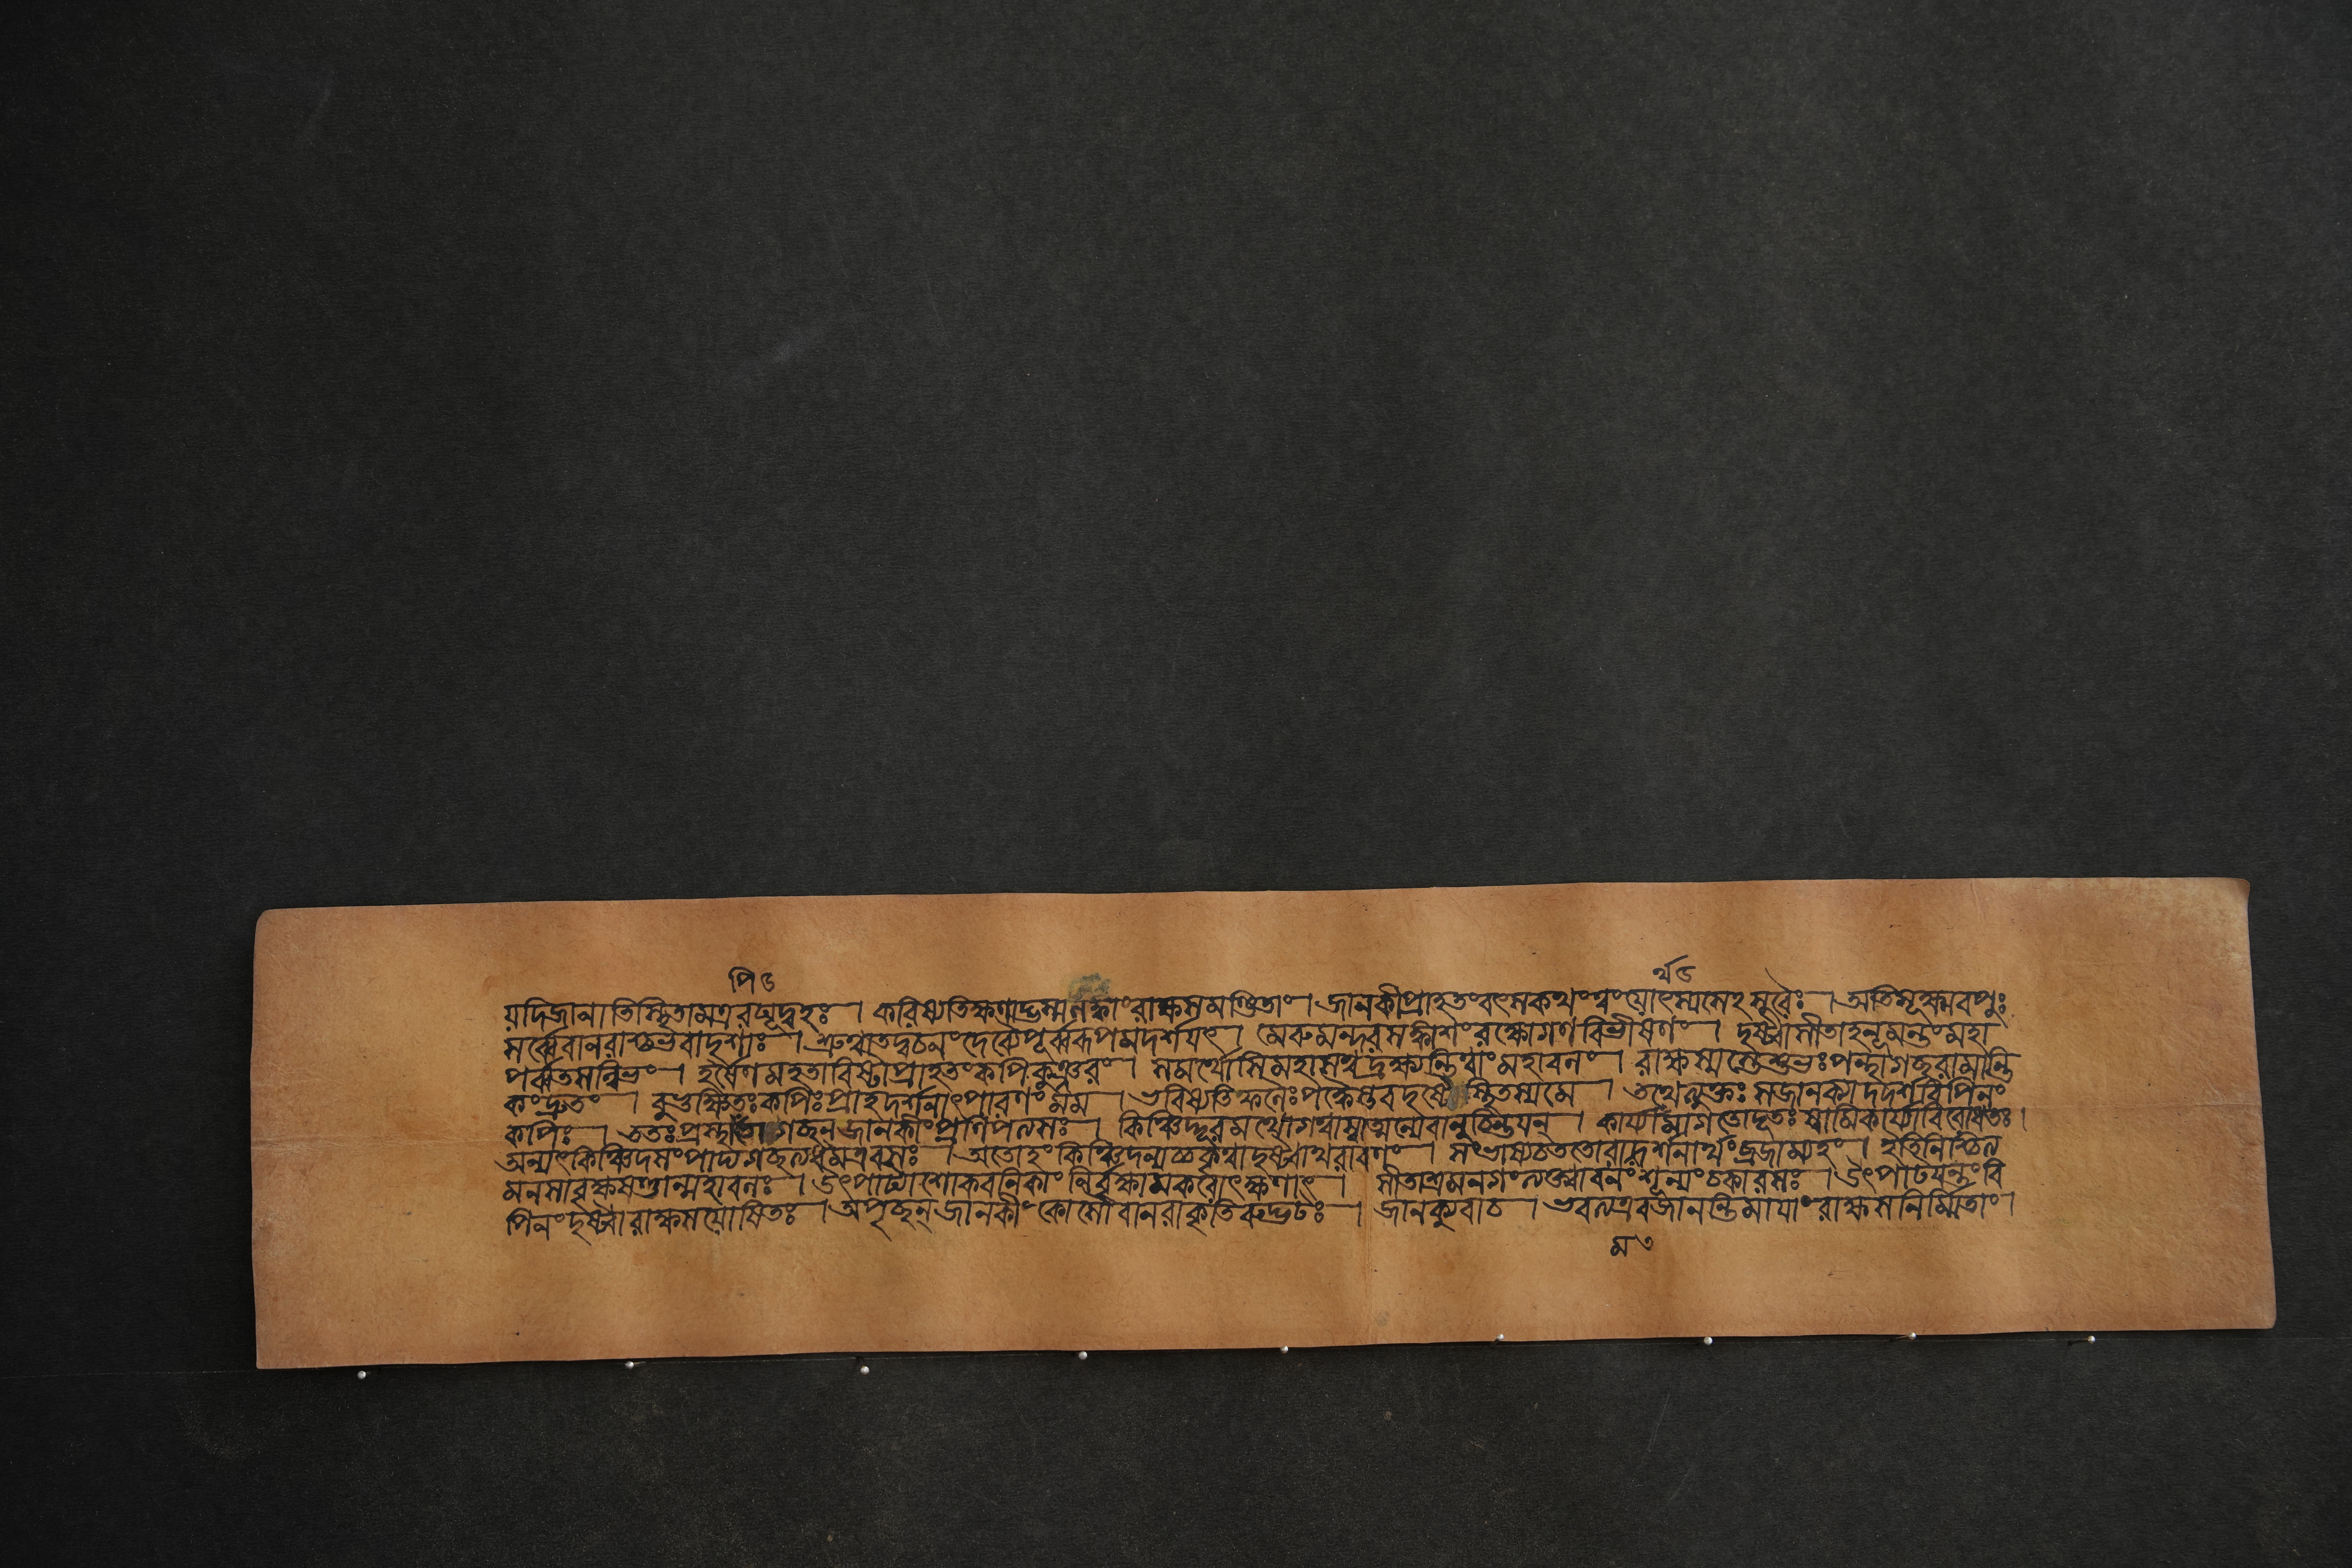 পি ৩ র্থ ৩
যদিজানাতিস্থিতামত্ররঘূদ্বহঃ । করিষ্যতিক্ষণাদ্ভস্মলঙ্কাংরাক্ষসমণ্ডিতাং । জানকীপ্রাহতংবৎসকথংত্বংযোৎস্যসেহসুরৈঃ । অতিসূক্ষ্মবপুঃ
সর্ব্বেবানরাশ্চভবাদৃশাঃ । শ্রুত্বাতদ্বচনংদেব্যৈপূর্ব্বরূপমদর্শয়ৎ । মেরুমন্দরসঙ্কাশংরক্ষোগণবিভীষণং । দৃষ্ট্বাসীতাহনূমন্তংমহা
পর্ব্বতসন্নিভং । হর্ষেণমহতাবিষ্টাপ্রাহতংকপিকুঞ্জরং । সমর্থোসিমহাসত্ত্বদ্রক্ষ্যন্তিত্বাংমহাবলং । রাক্ষস্যস্তেশুভঃপন্থাগচ্ছরামান্তি
কংদ্রুতং । বুভুক্ষিতঃকপিঃপ্রাহদর্শনাৎপারণংমম । ভবিষ্যতিফলৈঃপক্কৈস্তবদৃষ্টৌস্থিতস্যমে । তথেত্যুক্তঃসজানক্যাদদর্শবিপিনং
কপিঃ । ততঃপ্রস্থাপিতোগচ্ছন্জানকীংপ্রণিপত্যসঃ । কিঞ্চিদ্দূরমথোগত্বাস্বাত্মন্যেবানুচিন্তয়ন্ । কার্য্যার্থমাগতোদূতঃস্বামিকার্য্যাবিরোধতঃ।
অন্যৎকিঞ্চিদসংপাদ্যগচ্ছত্যধমএবসঃ । অতোহংকিঞ্চিদন্যচ্চকৃত্বাদৃষ্ট্বাথরাবণং । সংভাষ্যচততোরামদর্শনার্থংব্রজাম্যহং । ইতিনিশ্চিত্য
মনসাবৃক্ষষণ্ডান্মহাবলঃ । উৎপাট্যাশোকবনিকাংনির্বৃক্ষামকরোৎক্ষণাৎ । সীতাশ্রমনগংত্যক্ত্বাবনংশূন্যংচকারসঃ । উৎপাটয়ন্তংবি
পিনংদৃষ্ট্বারাক্ষসযোষিতঃ । অপৃচ্ছন্জানকীংকোসৌবানরাকৃতিরুদ্ভটঃ । জানক্যুবাচ । ভবত্যএবজানন্তিমায়াংরাক্ষসনির্মিতাং ।
ম ৩